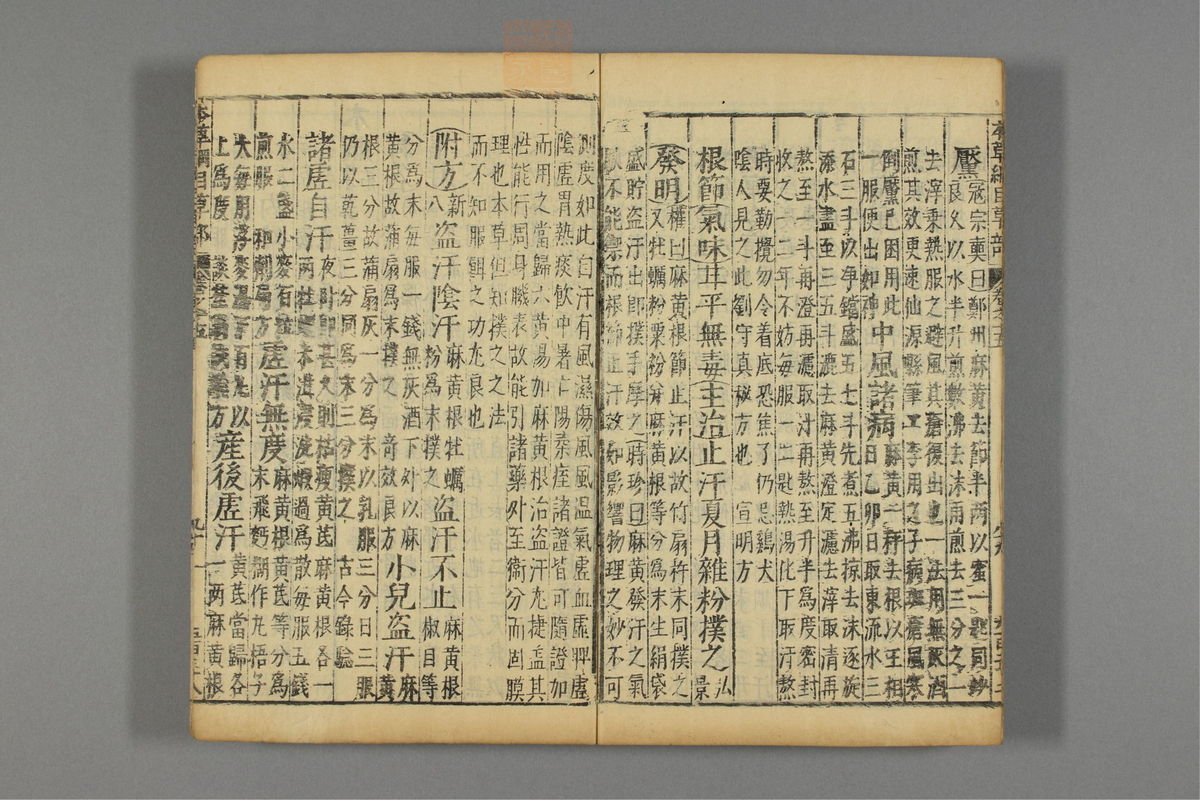 黶寇宗奭曰鄭州麻黃去節半兩以蜜一匙同炒
良久以水半升煎數沸去沫再煎去三分之一
去滓乘熱服之避風其瘡復出也一法用無灰酒
煎其效更速仙源縣筆工李用之子病斑瘡風寒
倒黶已困用此
一服便出如神中風諸病麻黃一秤去根以王相
日乙卯日取東流水三
石三斗以净鐺盛五七斗先煮五沸掠去沫逐旋
添水盡至三五斗漉去麻黃澄定濾去滓取清再
熬至一斗再澄再濾取汁再熬至升半爲度密封
收之一二年不妨每服一二匙熱湯化下取汗熬
時要勤攪勿令着底恐焦了仍忌鷄犬
陰人見之此劉守真秘方也 宣明方
根節氣味甘平無毒主治止汗夏月雜粉撲之弘景
發明權曰麻黃根節止汗以故竹扇杵末同撲之
又牡蠣粉粟粉并麻黃根等分爲末生絹袋
盛貯盗汗出即撲手摩之時珍曰麻黃發汗之氣
駃不能禦而根節止汗效如影響物理之妙不可
測度如此自汗有風濕傷風風温氣虛血虛脾虛
陰虛胃熱痰飲中暑亡陽柔痓諸證皆可隨證加
而用之當歸六黃湯加麻黃根治盗汗尤捷盖其
性能行周身肌表故能引諸藥外至衞分而固腠
理也本草但知撲之之法
而不知服餌之功尤良也
附方新八盗汗陰汗麻黃根牡蠣
粉爲末撲之盗汗不止麻黃根
椒目等
分爲末每服一錢無灰酒下外以麻
黃根故蒲扇爲末撲之 奇效良方小兒盗汗麻黃
根三分故蒲扇灰一分爲末以乳服三分日三服
仍以乾薑三分同爲末三分撲之 古今錄驗
諸虛自汗夜卧即甚久則枯瘦黃芪麻黃根各一
兩牡蠣米泔浸洗煅過爲散每服五錢
水二盞小麥百粒
煎服 和劑局方虛汗無度麻黃根黃芪等分爲
末飛麪糊作丸梧子
大每用浮麥湯下百丸以
止爲度 談埜翁試驗方産後虛汗黃芪當歸各
一兩麻黃根